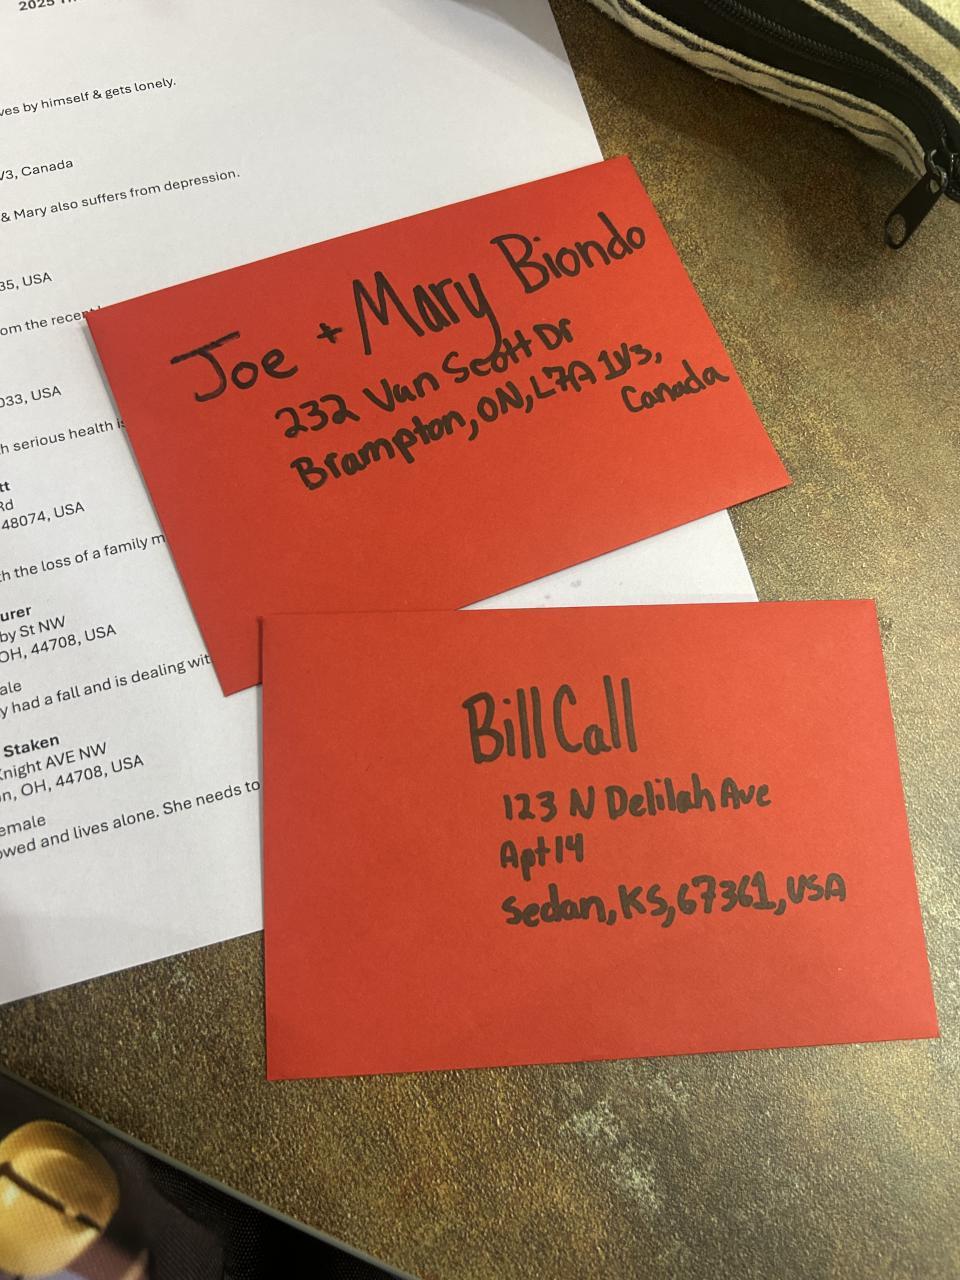 2025
ves by himself & gets lonely.
V3, Canada
& Mary also suffers from depression.
35, USA
om the recent
033, USA
h serious health is
tt
Rd
48074, USA
th the loss of a family m
urer
by St NW
OH, 44708, USA
ale
y had a fall and is dealing wit
Staken
Knight AVE NW
n, OH, 44708, USA
emale
owed and lives alone. She needs to
Joe + Mary Biondo
232 Van Scott Dr
Brampton, ON, L7A 1V3,
Canada
Bill Call
123 N Delilah Ave
Apt 14
Sedan, KS, 67361, USA